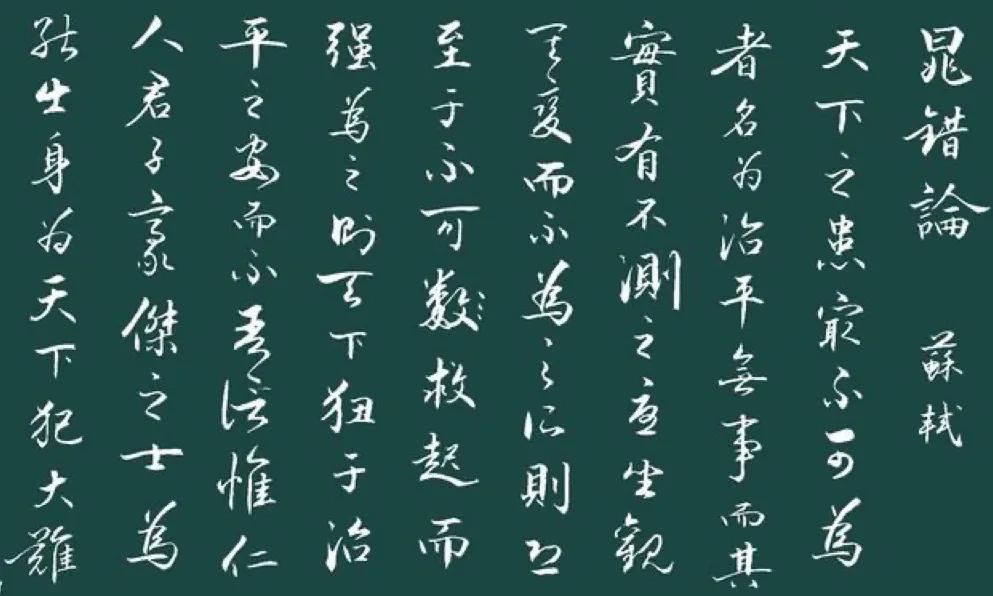 晁錯論 蘇軾
天下之患冣不可為
者名为治平無事而其
實有不測之憂坐觀
其變而不為之所則恐
至于不可數救起而
强為之則天下狃于治
平之安而不吾信惟仁
人君子豪傑之士為
能出身为天下犯大難